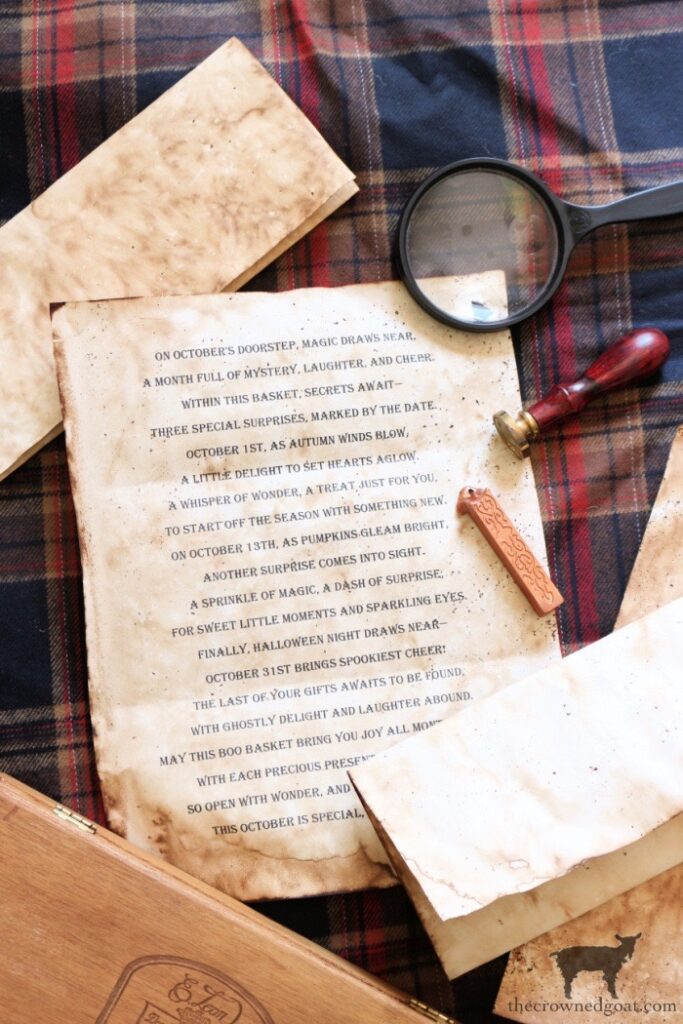 ON OCTOBER'S DOORSTEP, MAGIC DRAWS NEAR,
A MONTH FULL OF MYSTERY, LAUGHTER, AND CHEER.
WITHIN THIS BASKET, SECRETS AWAIT—
THREE SPECIAL SURPRISES, MARKED BY THE DATE.
OCTOBER 1ST, AS AUTUMN WINDS BLOW,
A LITTLE DELIGHT TO SET HEARTS AGLOW.
A WHISPER OF WONDER, A TREAT JUST FOR YOU,
TO START OFF THE SEASON WITH SOMETHING NEW.
ON OCTOBER 13TH, AS PUMPKINS GLEAM BRIGHT,
ANOTHER SURPRISE COMES INTO SIGHT.
A SPRINKLE OF MAGIC, A DASH OF SURPRISE,
FOR SWEET LITTLE MOMENTS AND SPARKLING EYES.
FINALLY, HALLOWEEN NIGHT DRAWS NEAR—
OCTOBER 31ST BRINGS SPOOKIEST CHEER!
THE LAST OF YOUR GIFTS AWAITS TO BE FOUND,
WITH GHOSTLY DELIGHT AND LAUGHTER ABOUND.
MAY THIS BOO BASKET BRING YOU JOY ALL MONT
WITH EACH PRECIOUS PRESENT
SO OPEN WITH WONDER, AND
THIS OCTOBER IS SPECIAL,
León
thecrownedgoat.com